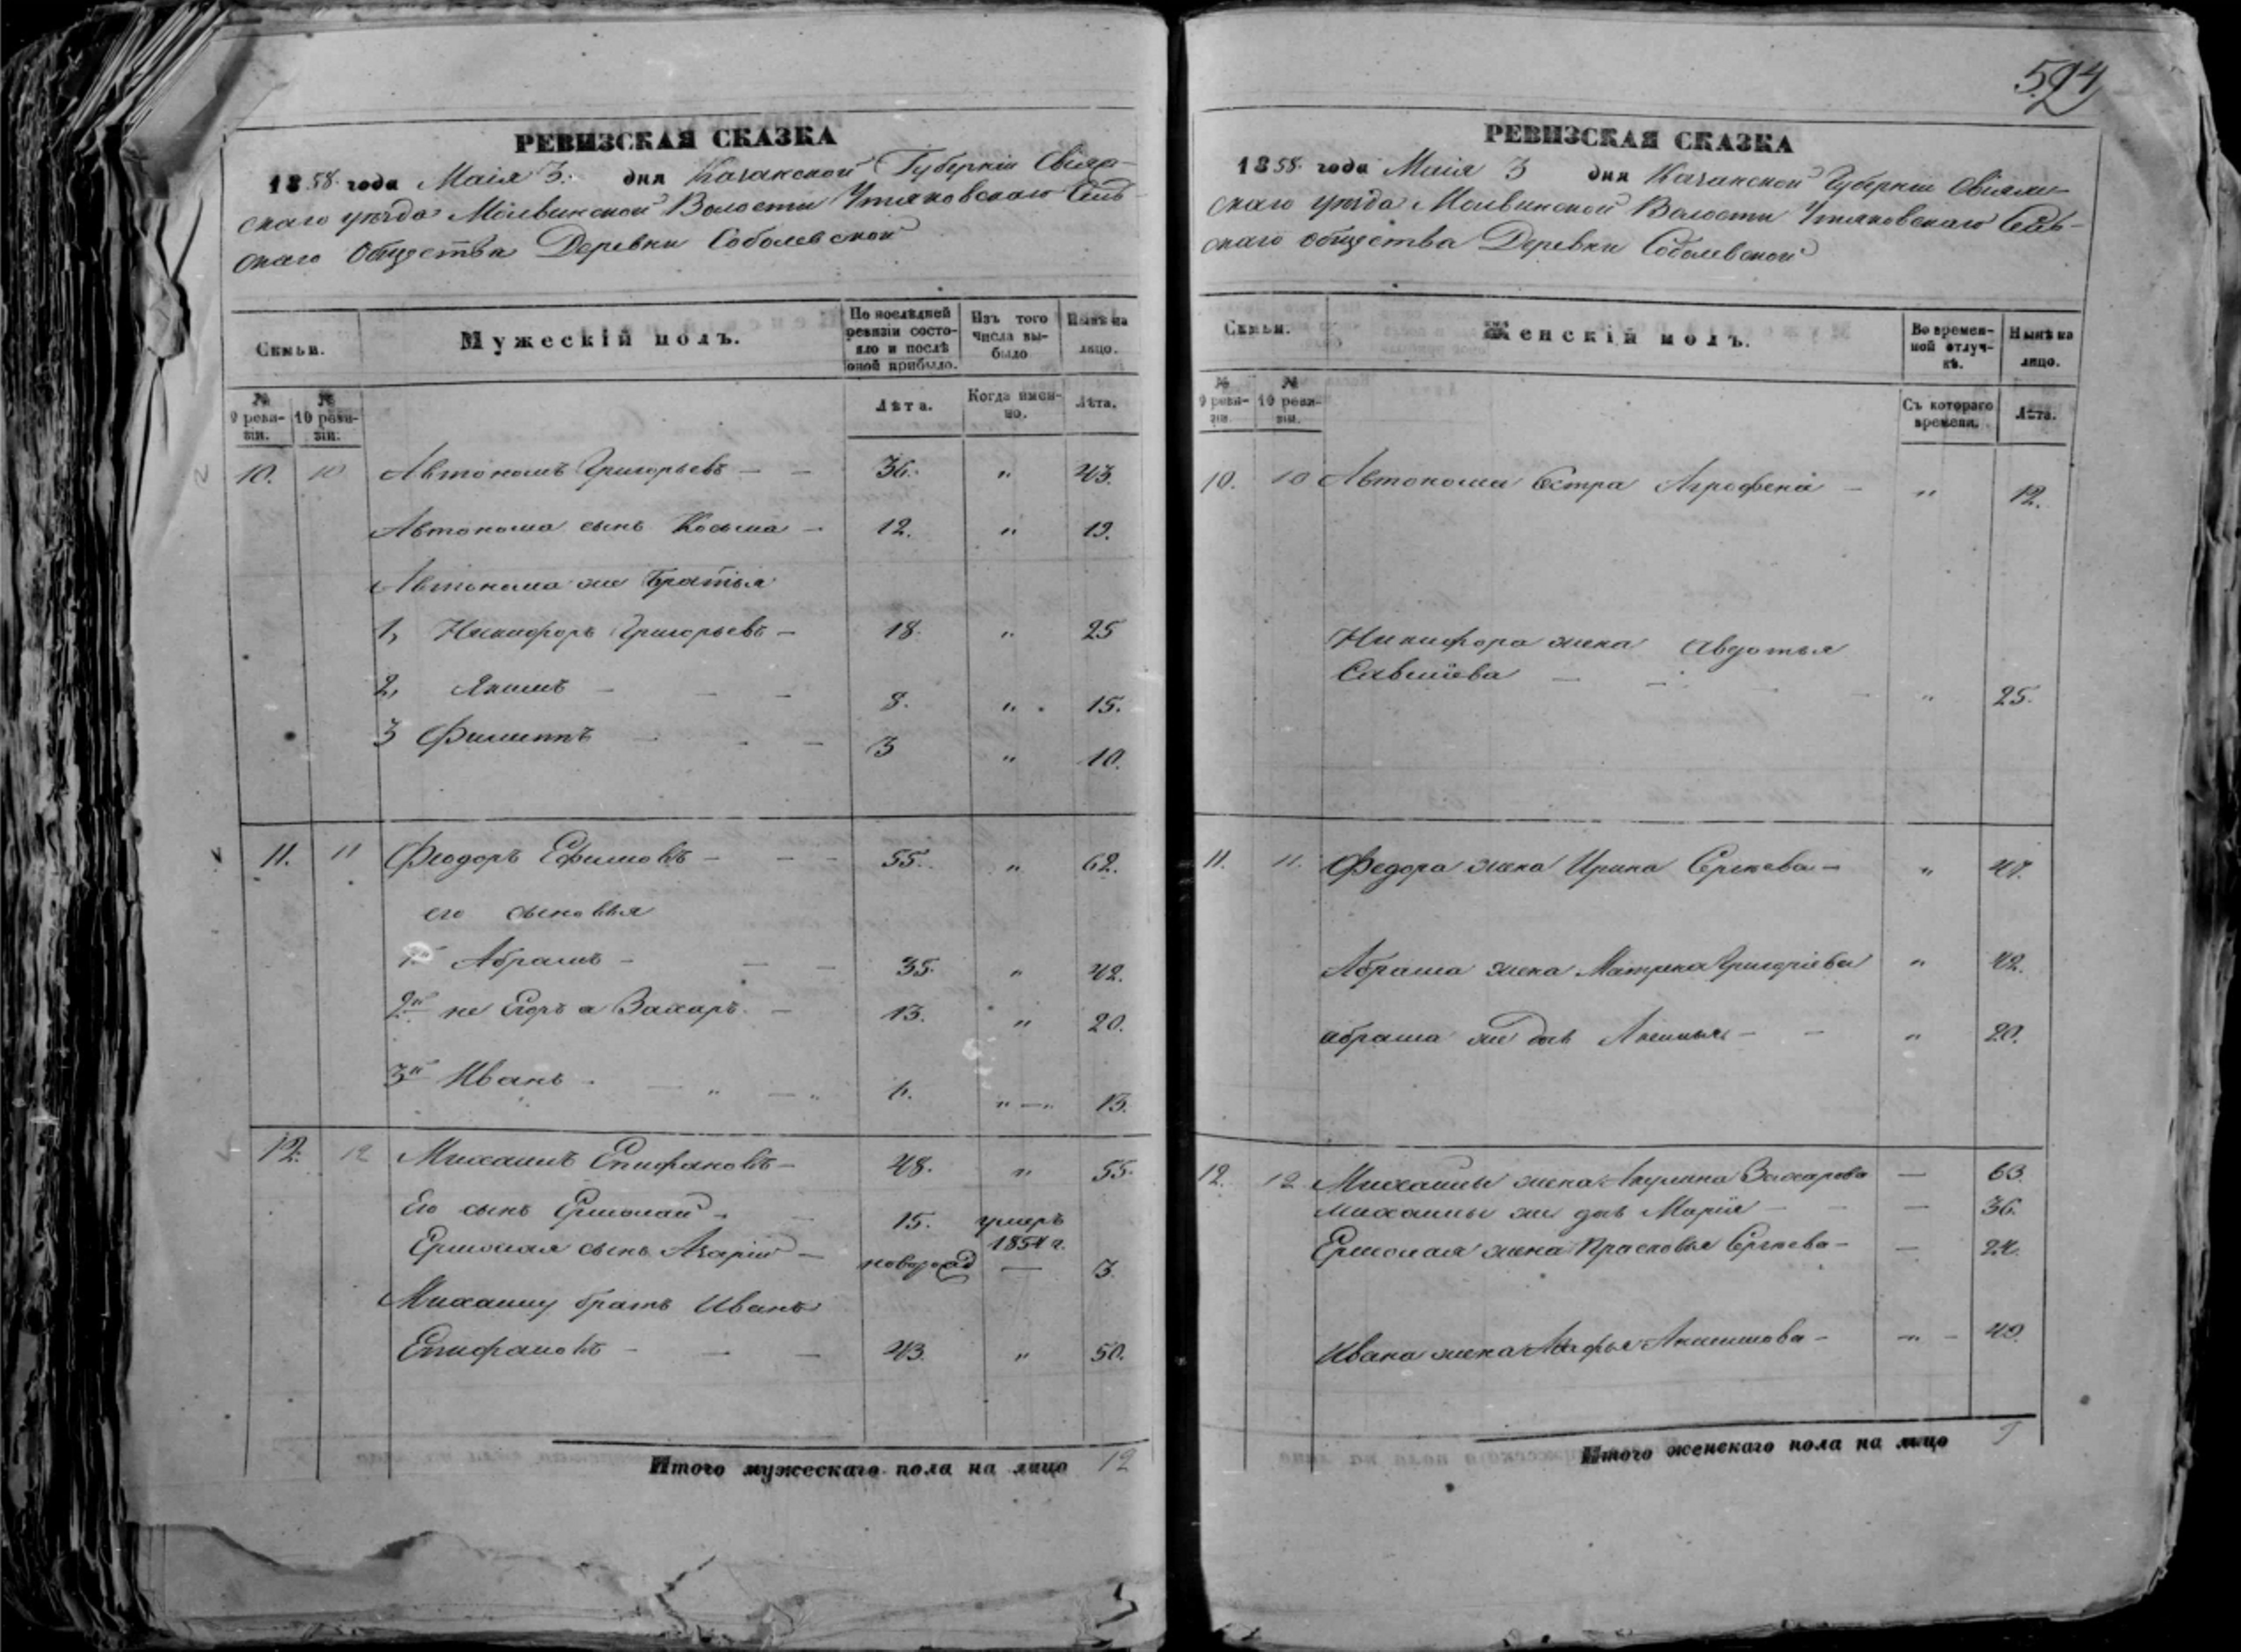 594
РЕВИЗСКАЯ СКАЗКА
1858 года Маія 3. дня Казанской Губерніи Свіяж-
скаго уезда Молвинской Волости Утяковскаго Сель-
скаго Общества Деревни Соболевской
Семьи.
Мужескій полъ.
По послѣдней ревизіи состо-
яло и послѣ
оной прибыло.
Изъ того
числа вы-
было
Нынѣ на
лицо.
№
9 реви-
зіи.
№
10 реви-
зіи.
Лѣта.
Когда имен-
но.
Лѣта.
10. 10 Автономъ Григорьевъ — — 36. " 43.
Автонома сынъ Косьма — 12. " 19.
Автонома же братья
1, Никифоръ Григорьевъ — 18. " 25
2, Якимъ — — — 8. " 15.
3 Филиппъ — 3 " 10.
11. 11 Феодоръ Ефимовъ — — — 55. " 62.
его сыновья
1й Абрамъ — — — 35. " 42.
2й не Егоръ а Захаръ. — 13. " 20.
3й Иванъ 6. " 13.
12. 12 Михаилъ Епифановъ — 48. " 55.
Его сынъ Ермолай — 15. умеръ
1854 г.
Ермолая сынъ Азарій — новорожд — 3.
Михаилу братъ Иванъ
Епифановъ — — — 43. " 50.
Итого мужескаго пола на лицо 12
РЕВИЗСКАЯ СКАЗКА
1858 года Маія 3 дня Казанской Губерніи Свіяж-
скаго уезда Молвинской Волости Утяковскаго Сель-
скаго общества Деревни Соболевской
Семьи.
Женскій полъ.
Во времен-
ной отлуч-
кѣ.
Нынѣ на
лицо.
№
9 реви-
зіи.
№
10 реви-
зіи.
Съ котораго
времени.
Лѣта.
10. 10 Автонома Сестра Агрофена — " 12.
Никифора жена Авдотья
Савелiева — — " 25.
11. 11. Федора жена Ирина Сергѣева — " 47.
Абрама жена Матрена Григоріева " 42.
абрама же дочь — — " 20.
12. 12 Михаилы жена Акулина Захарова — 63.
Михаилы же дочь Марія — — — 36.
Ермолая жена Прасковья Сергѣева — — 24.
Ивана жена Агафья Акимова — — " — 49.
Итого женскаго пола на лицо 9